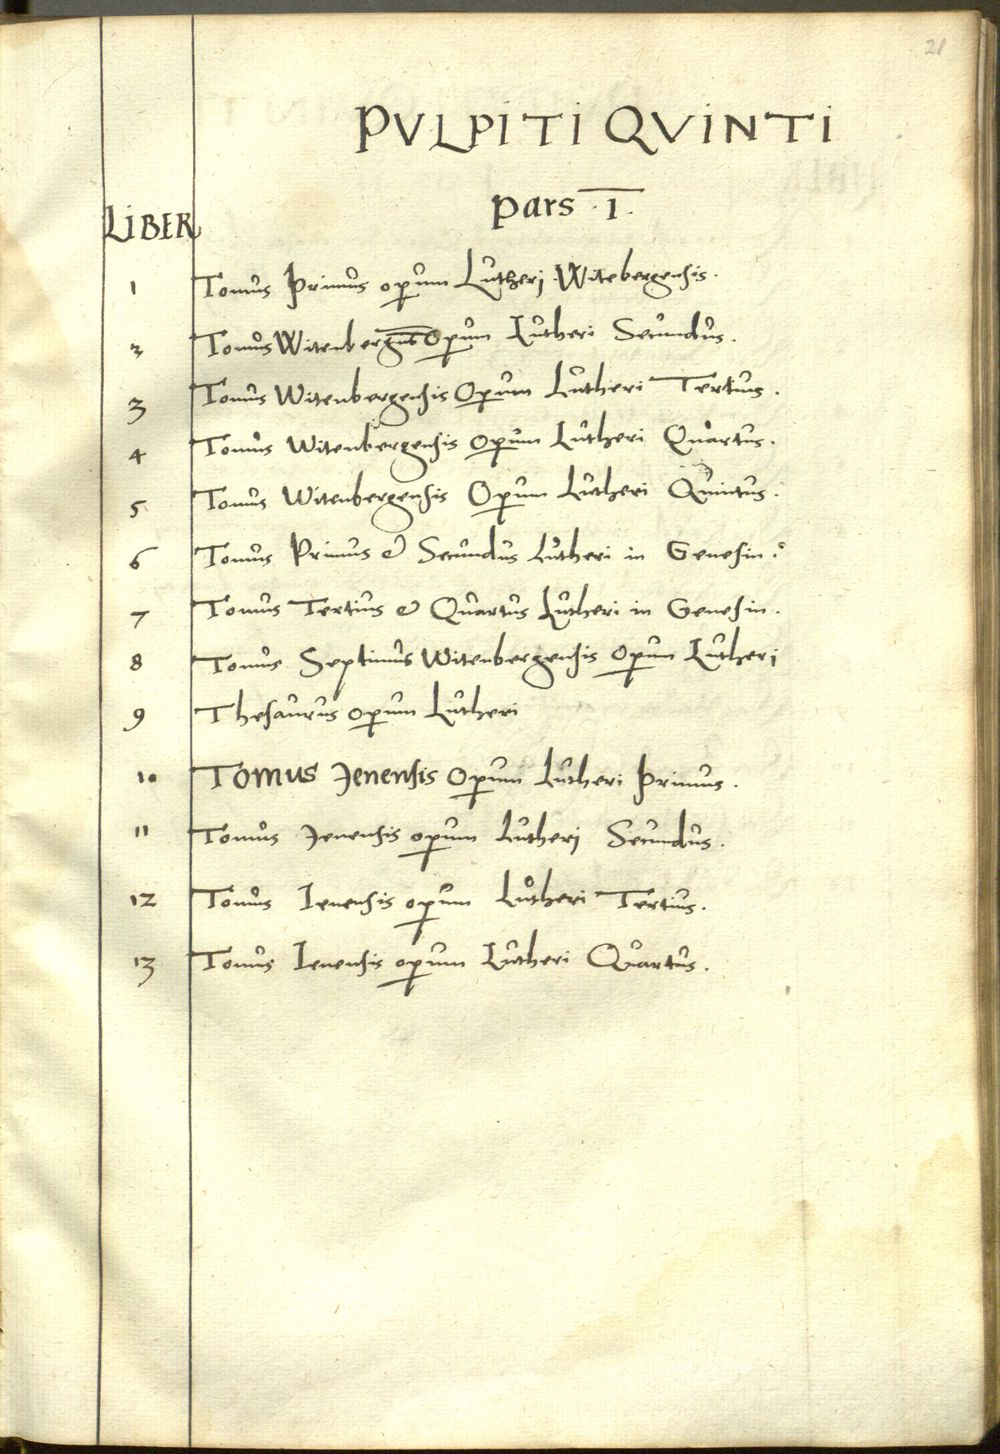 21
PVLPITI QVINTI
Pars I.
LIBER
1 Tomus Primus opꝑum Lutheri Witebergensis.
2 Tomus Witenbergns̄ Oꝑum Lutheri Secundus.
3 Tomus Witenbergensis Oꝑum Lutheri Tertius.
4 Tomus Witenbergensis oꝑum Lutheri Quartus.
5 Tomus Witenbergensis Oꝑum Lutheri Quintus.
6 Tomus Primus & Secundus Lutheri in Genesin.
7 Tomus Tertius & Quartus Lutheri in Genesin.
8 Tomus Septimus Witenbergensis oꝑum Lutherj
9 Thesaurus oꝑum Lutheri
10 Tomus Jenensis oꝑum Lutheri Primus.
11 Tomus Jenensis oꝑum Lutherj Secundus.
12 Tomus Ienensis oꝑum Lutheri Tertius.
13 Tomus Ienensis oꝑum Lutheri Quartus.